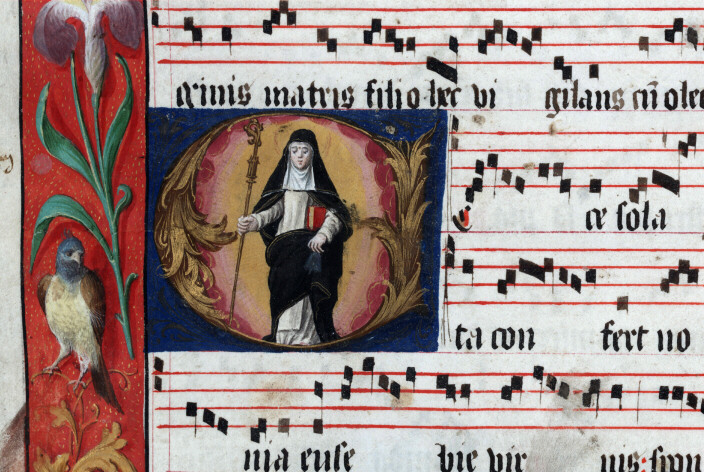 ginis matris filio hec vi gilans cū oleo
ce sola
ta con fert no
nia euse bie vir